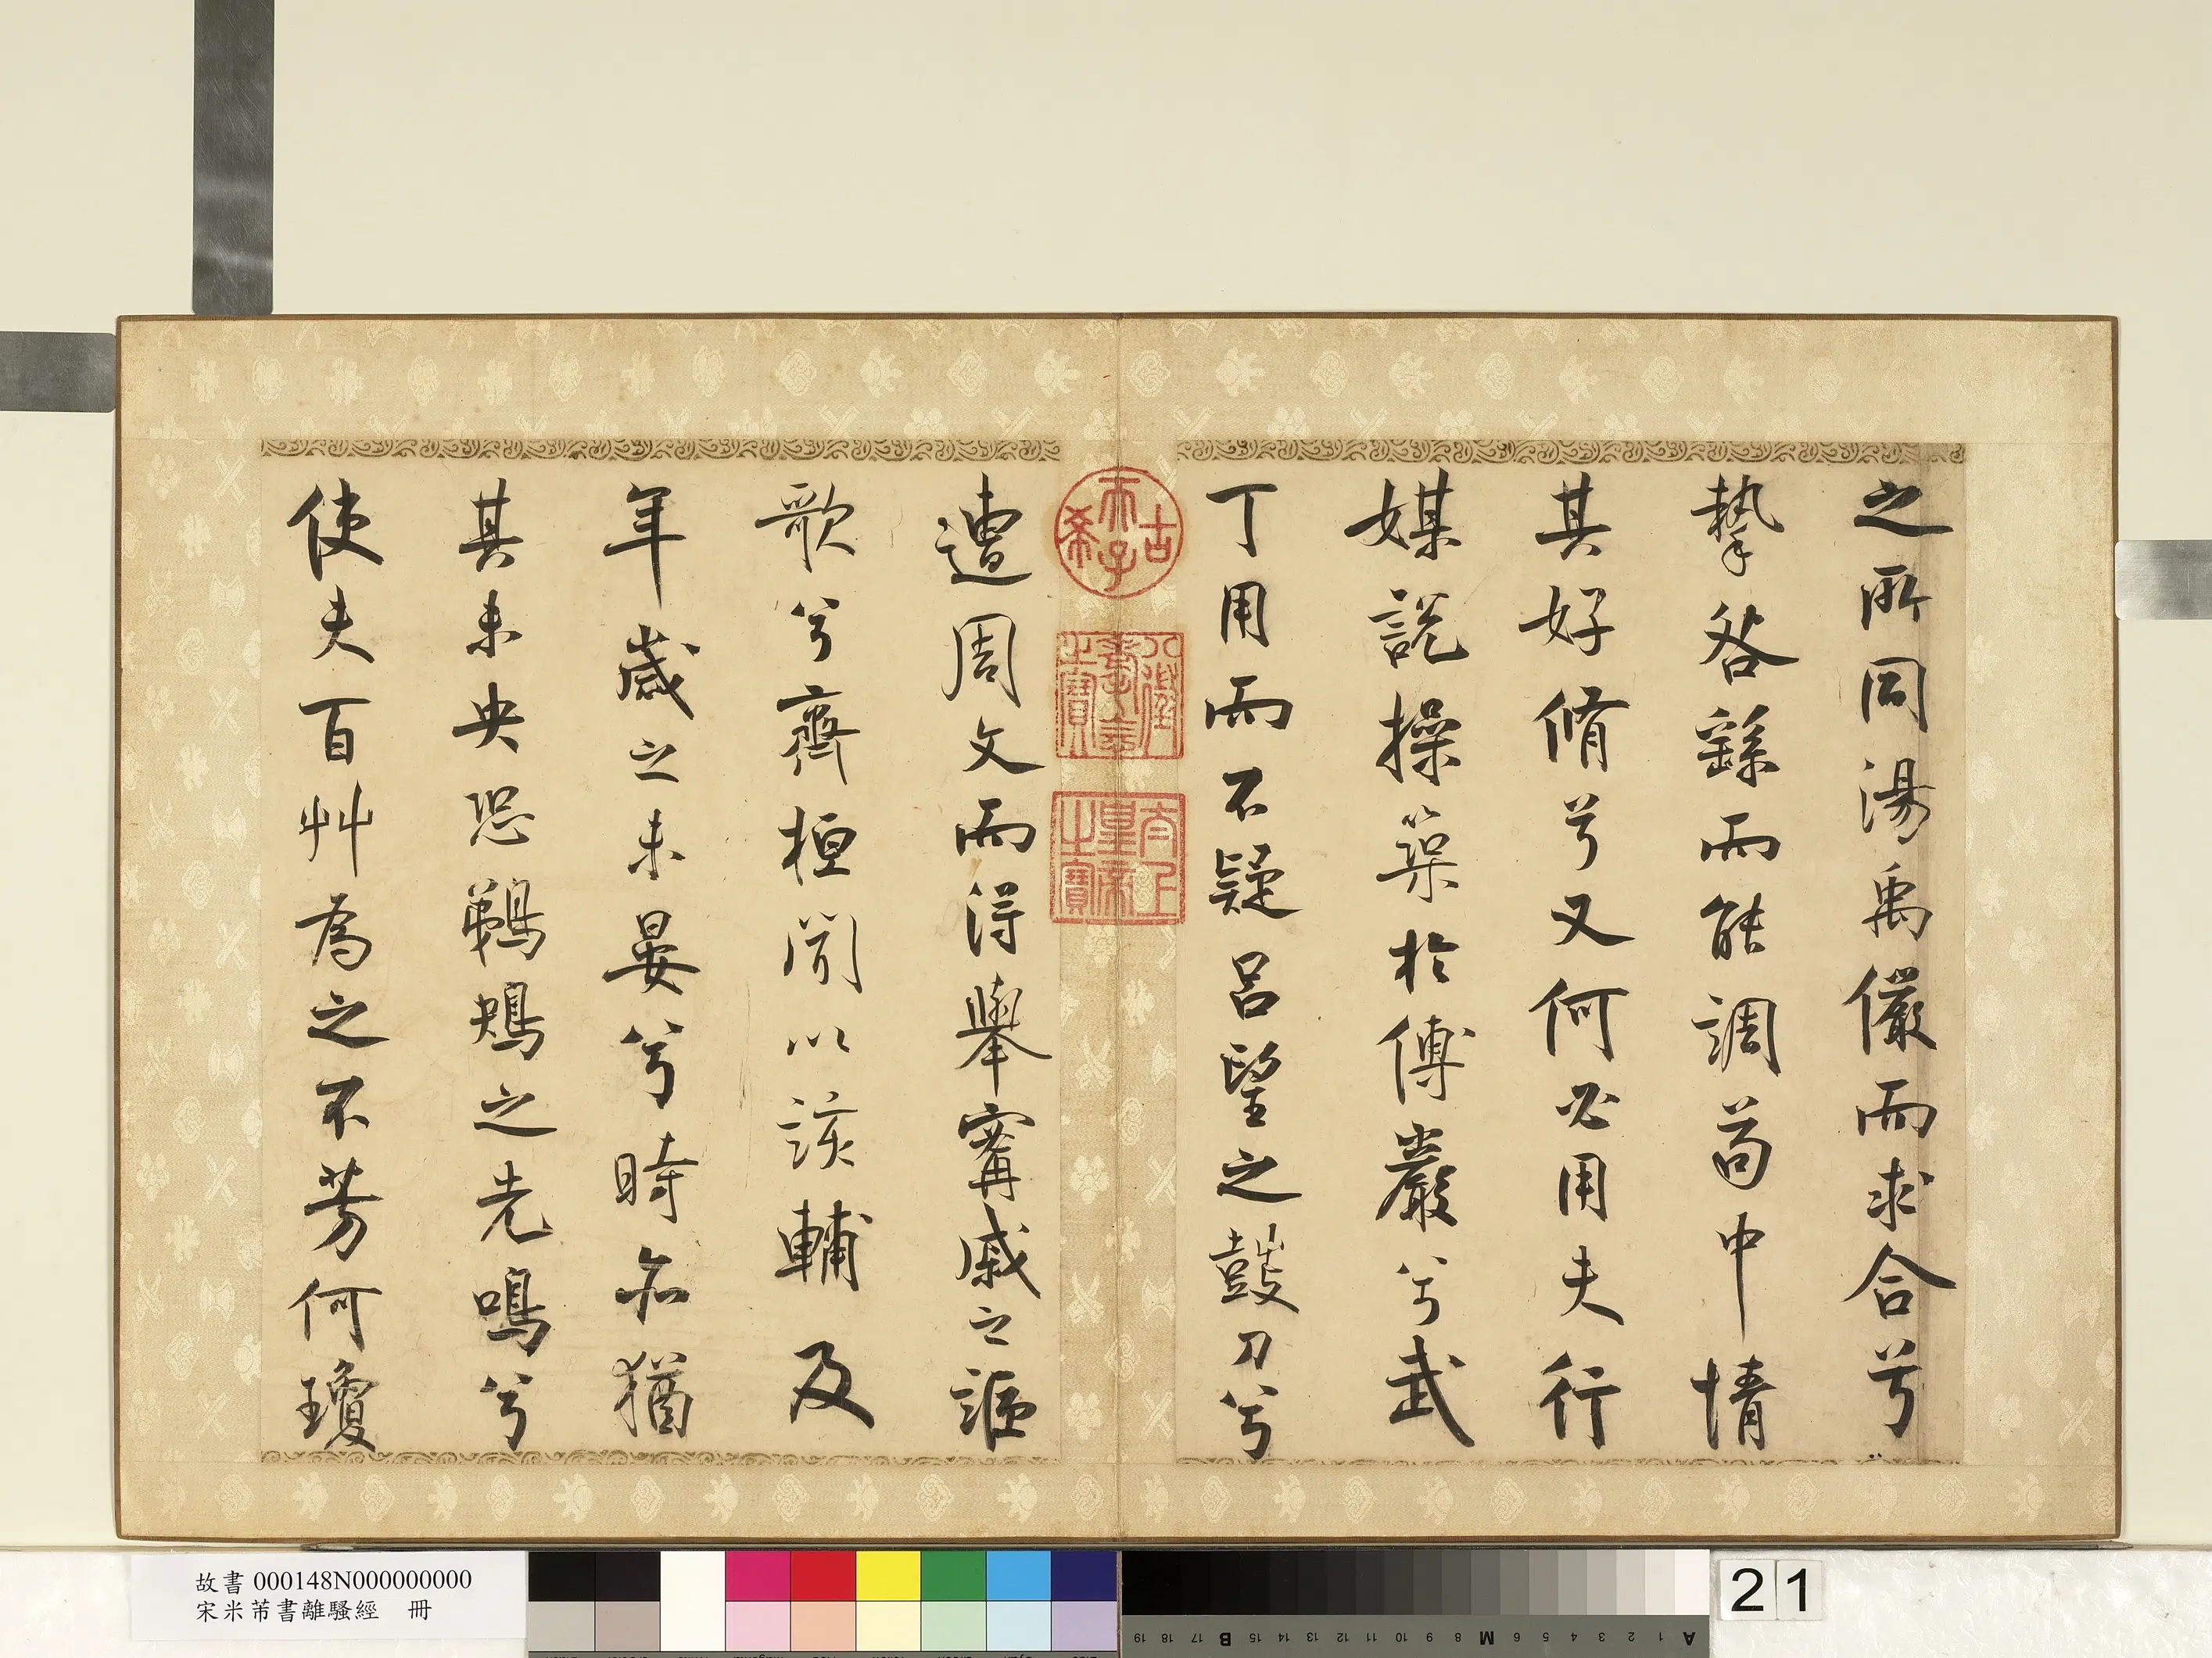 之所同湯禹儼而求合兮
摯咎繇而能調苟中情
其好脩兮又何必用夫行
媒說操築於傅巖兮武
丁用而不疑呂望之鼓刀兮
遭周文而得舉甯戚之謳
歌兮齊桓聞以該輔及
年歲之未晏兮時亦猶
其未央恐鵜鴂之先鳴兮
使夫百艸為之不芳何瓊
古希天子
八徵耄念之寶
太上皇帝之寶
故書 000148N000000000
宋米芾書離騷經 冊
21
A 1 2 3 4 5 6 M 8 9 10 11 12 13 14 15 B 17 18 19